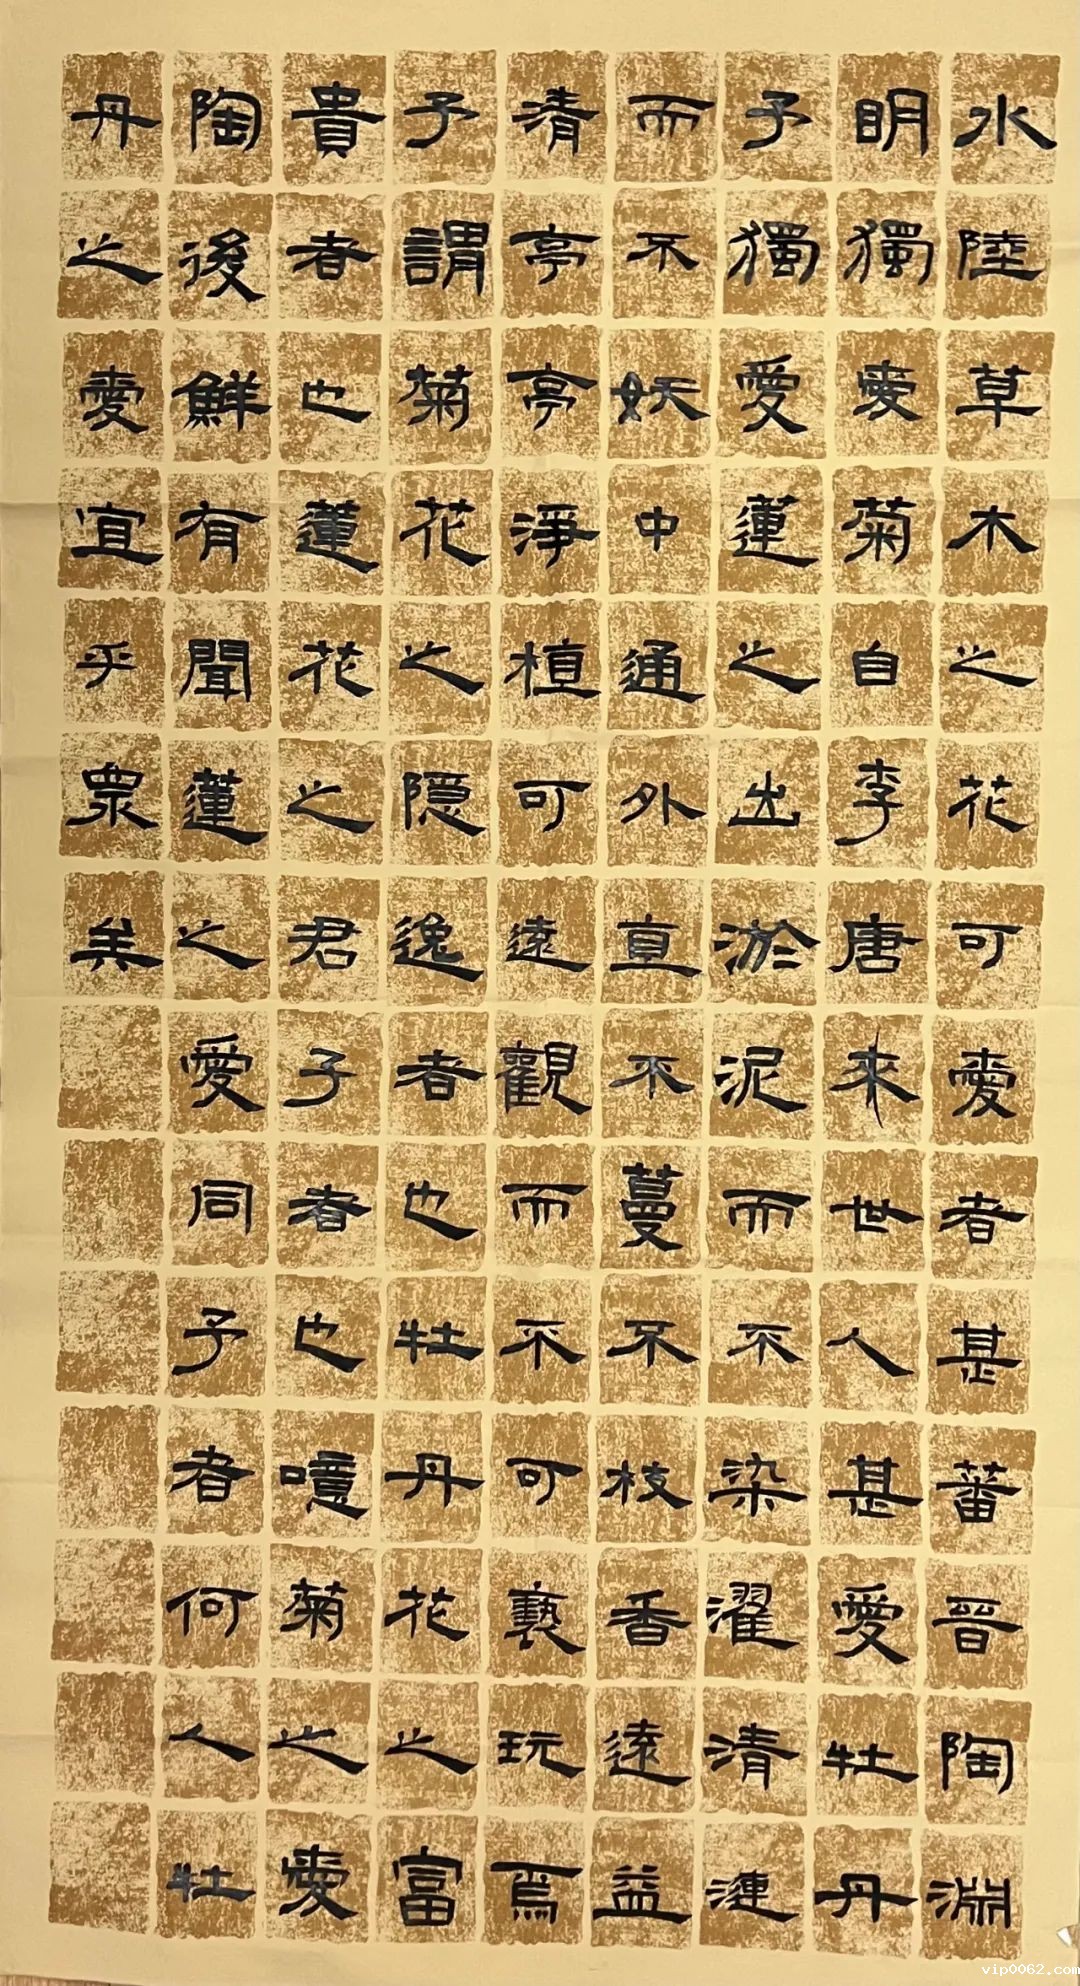 水陸草木之花可愛者甚蕃晉陶淵
明獨愛菊自李唐來世人甚愛牡丹
予獨愛蓮之出淤泥而不染濯清漣
而不妖中通外直不蔓不枝香遠益
清亭亭淨植可遠觀而不可褻玩焉
予謂菊花之隱逸者也牡丹花之富
貴者也蓮花之君子者也噫菊之愛
陶後鮮有聞蓮之愛同予者何人牡
丹之愛宜乎眾矣
vip0062.com